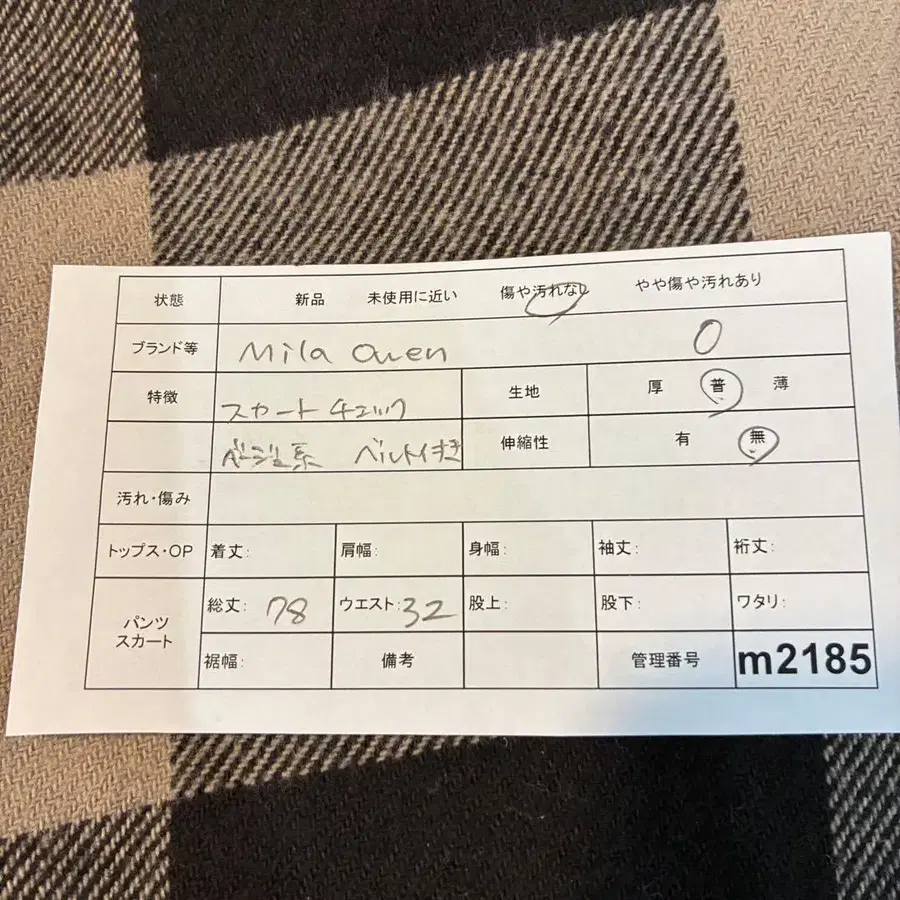 状態 新品 未使用に近い 傷や汚れなし やや傷や汚れあり
ブランド等 Mila Owen 0
特徴 スカート チェック 生地 厚 普 薄
ベージュ系 ベルト付き 伸縮性 有 無
汚れ・傷み
トップス・OP 着丈: 肩幅: 身幅: 袖丈: 裄丈:
パンツ スカート 総丈: 78 ウエスト: 32 股上: 股下: ワタリ:
裾幅: 備考 管理番号 m2185